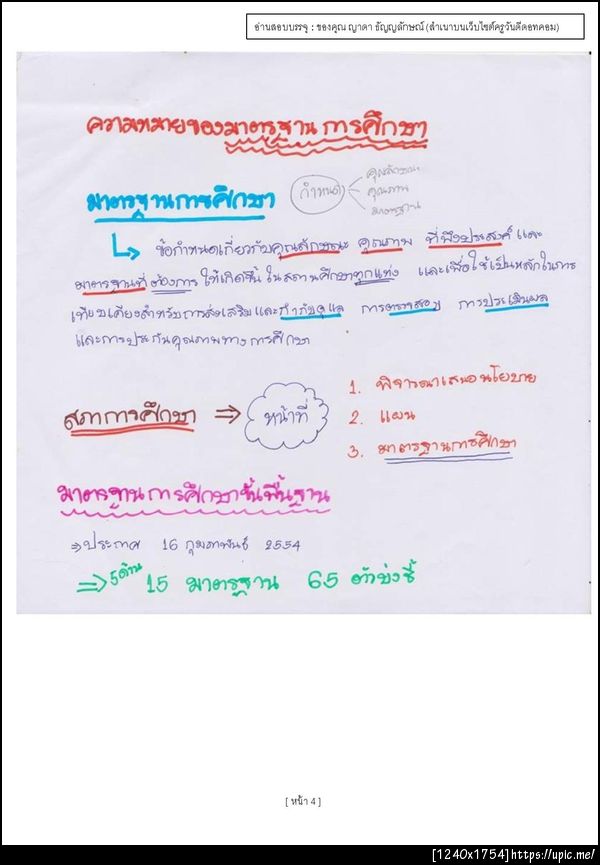 อ่านสอบบรรจุ : ของคุณ ญาดา ธัญญลักษณ์ (สำเนาบนเว็บไซต์ครูวันดีดอทคอม)
ความหมายของมาตรฐานการศึกษา
มาตรฐานการศึกษา
กำหนด
คุณลักษณะ
คุณภาพ
มาตรฐาน
ข้อกำหนดเกี่ยวกับคุณลักษณะ คุณภาพ ที่พึงประสงค์ และ
มาตรฐานที่ต้องการ ให้เกิดขึ้น ในสถานศึกษาทุกแห่ง และเพื่อใช้เป็นหลักในการ
เทียบเคียงสำหรับการส่งเสริมและกำกับดูแล การตรวจสอบ การประเมินผล
และการประกันคุณภาพทางการศึกษา
สภาการศึกษา ⇒ หน้าที่
1. พิจารณาเสนอนโยบาย
2. แผน
3. มาตรฐานการศึกษา
มาตรฐานการศึกษาขั้นพื้นฐาน
⇒ประกาศ 16 กุมภาพันธ์ 2554
⇒ 5ด้าน 15 มาตรฐาน 65 ตัวบ่งชี้
[ หน้า 4 ]
[1240x1754]https://upic.me/